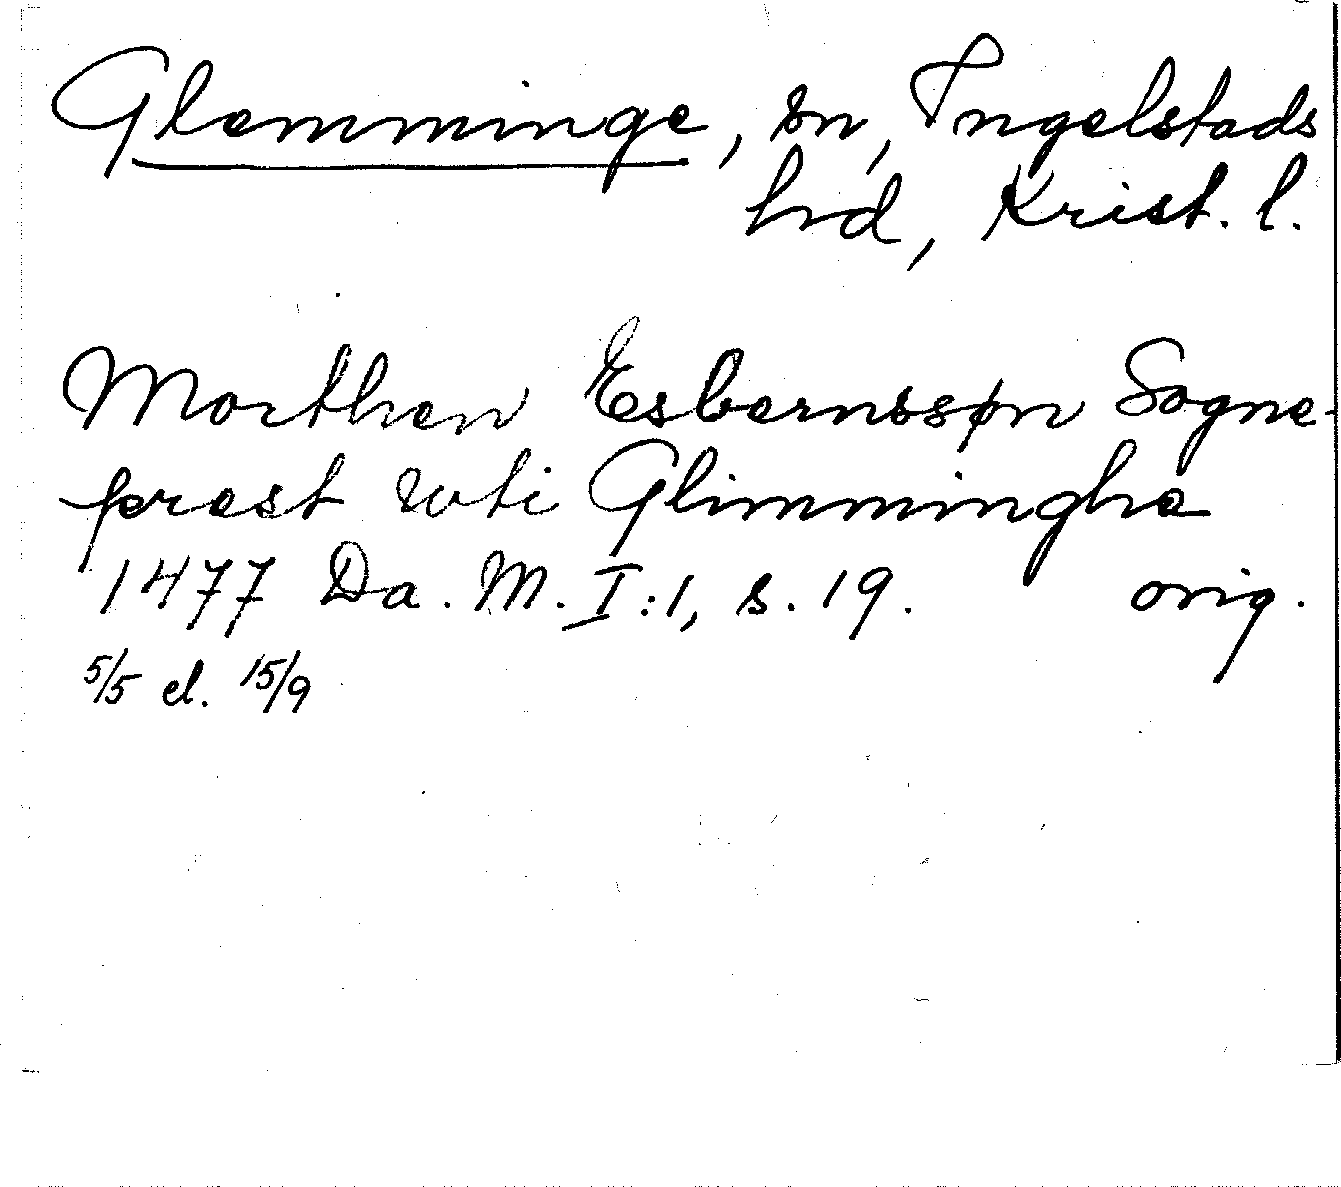 Glemminge, sn, Ingelstads
hd, Krist. l.
Morthen Esbernssøn Sogne-
prest wti Glimminghe
1477 Da. M. I:1, s. 19. orig.
5/5 el. 15/9